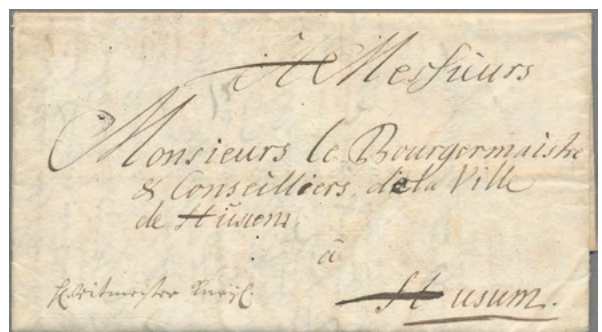 A Messieurs
Monsieurs le Bourgermaistre
& Conseilliers de la Ville
de Husum.
à
Husum.